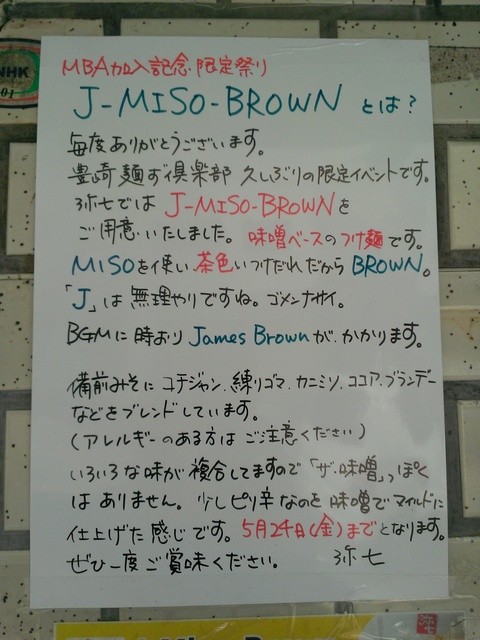 NHK
01
MBA加入記念 限定祭り
J-MISO-BROWN とは?
毎度ありがとうございます。
豊崎 麺ず倶楽部 久しぶりの限定イベントです。
弥七では J-MISO-BROWNを
ご用意いたしました。 味噌ベースのつけ麺です。
MISOを使い 茶色いつけだれだから BROWN。
「J」は 無理やりですね。ゴメンナサイ。
BGMに 時おり James Brown が、かかります。
備前みそに コチジャン、練りゴマ、カニミソ、ココア、ブランデー
などをブレンドしています。
(アレルギーのある方は ご注意ください)
いろいろな味が 複合してますので「ザ・味噌」っぽく
は ありません。少しピリ辛なのを 味噌でマイルドに
仕上げた感じです。5月24日(金)までとなります。
ぜひ一度ご賞味ください。 弥七